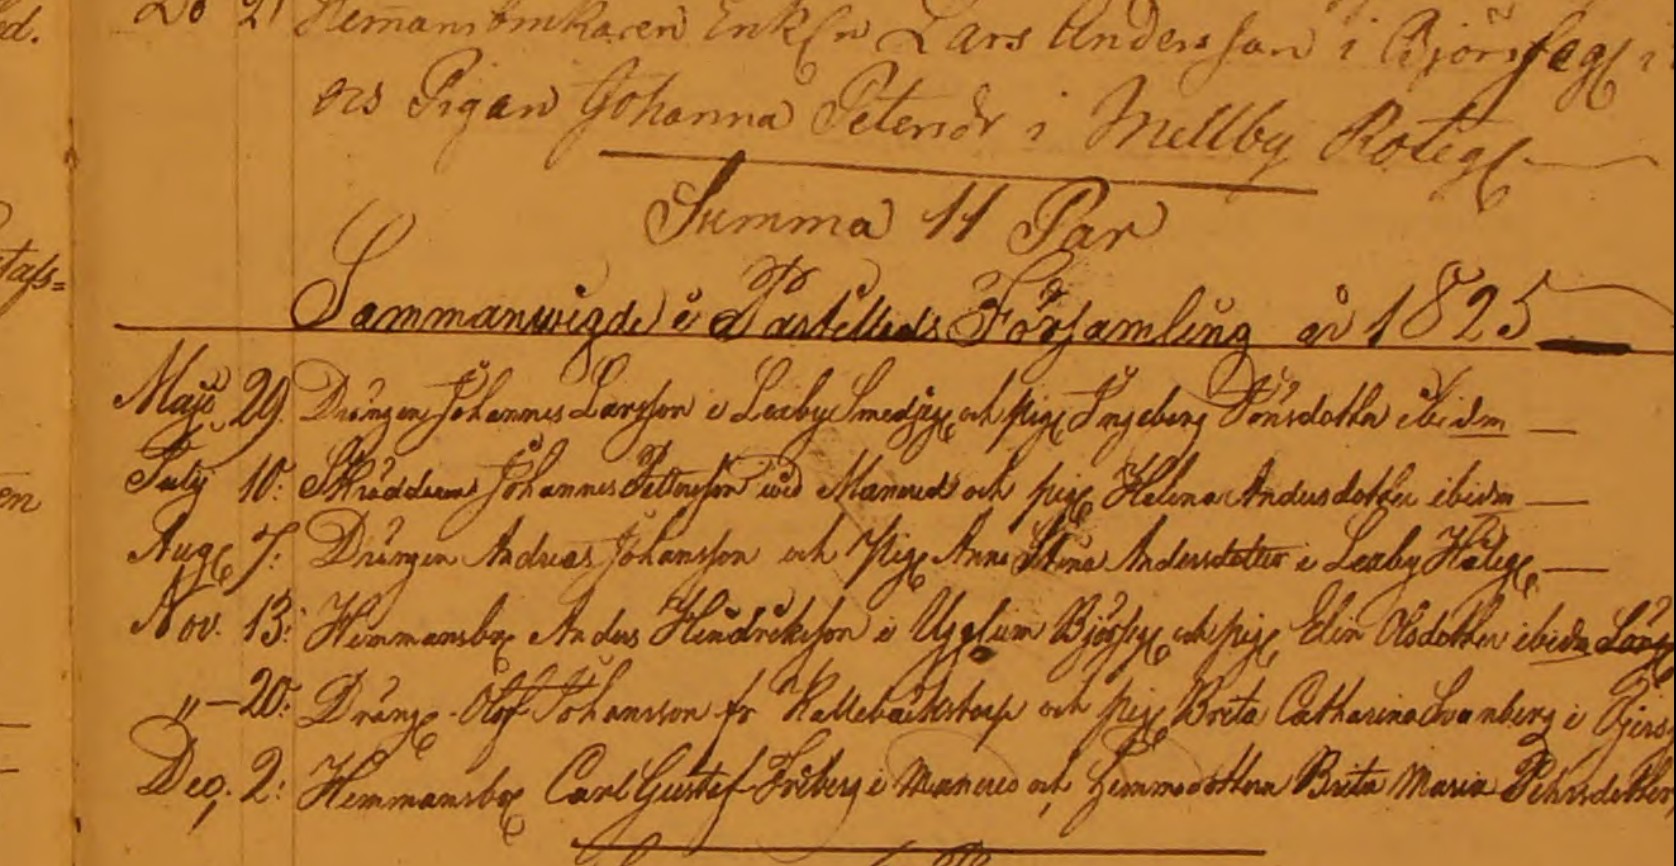 d.
Do 21 Hemansbrukaren Enkln Lars Andersson i Björsgeg i
ocs Pigan Johanna Petersdr i Mellby Roteg
Summa 11 Par
tafs=
Sammanwigde i Församling år 1825
Maji 29. Drängen Johannes Larsson i Leaby Smedjeg och pig Ingeborg Jönsdotter ibidm —
July 10: Skräddaren Johannes Pettersson wid Manered och pig Helena Andersdotter ibidm —
en
Aug 7: Drängen Andreas Johansson och Pig Anna Stina Andersdotter i Leaby Håleg —
Nov. 13: Hemmansbr Anders Hendricksson i Ugglum Björsg och pig Elin Olsdotter ibidm
„ — 20: Dräng Olof Johansson fr Kallebäckstorp och pig Brita Catharina Svanberg i
Dec. 2: Hemmansbr Carl Gustaf Friberg i Manered och Hemmadottern Brita Maria Pehrsdotter